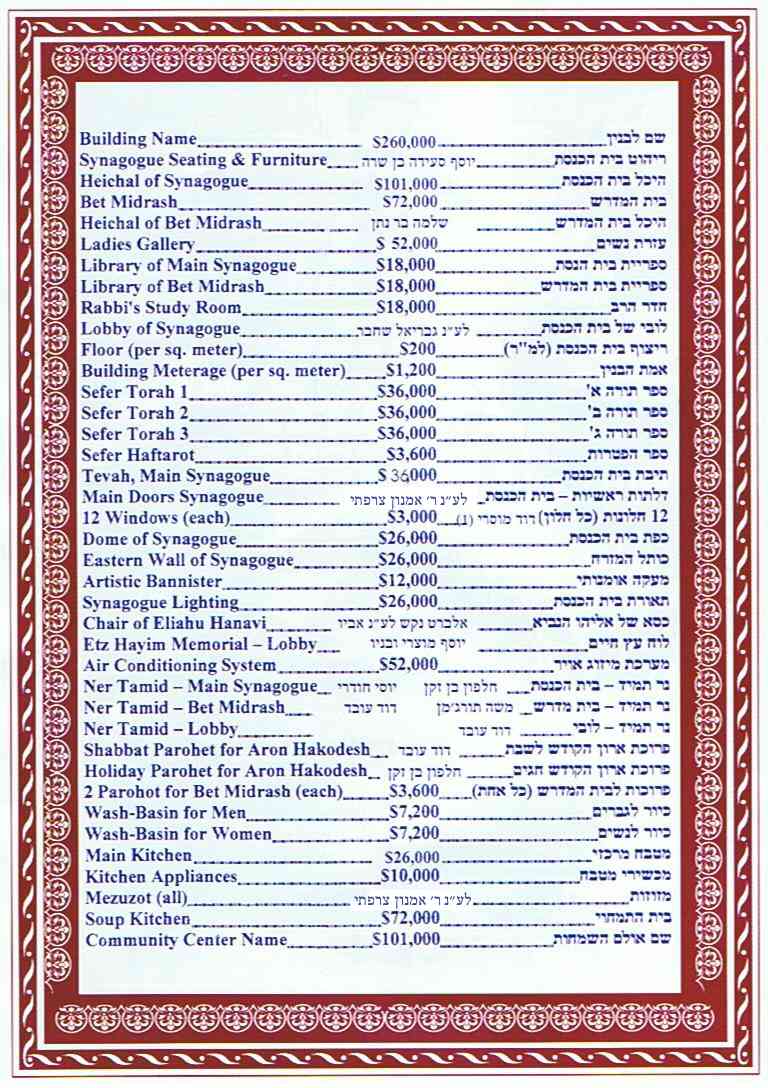 Building Name $260,000 שם לבנין
Synagogue Seating & Furniture יוסף סעידה בן שרה ריהוט בית הכנסת
Heichal of Synagogue $101,000 היכל בית הכנסת
Bet Midrash $72,000 בית המדרש
Heichal of Bet Midrash שלמה בר נתן היכל בית המדרש
Ladies Gallery $ 52,000 עזרת נשים
Library of Main Synagogue $18,000 ספריית בית הנסת
Library of Bet Midrash $18,000 ספריית בית המדרש
Rabbi's Study Room $18,000 חדר הרב
Lobby of Synagogue לע״נ גבריאל שחבר לובי של בית הכנסת
Floor (per sq. meter) $200 ריצוף בית הכנסת (למ"ר)
Building Meterage (per sq. meter) $1,200 אמת הבנין
Sefer Torah 1 $36,000 ספר תורה א'
Sefer Torah 2 $36,000 ספר תורה ב'
Sefer Torah 3 $36,000 ספר תורה ג'
Sefer Haftarot $3,600 ספר הפטרות
Tevah, Main Synagogue $ 36000 תיבת בית הכנסת
Main Doors Synagogue לע״נ ר׳ אמנון צרפתי דלתות ראשיות – בית הכנסת
12 Windows (each) $3,000 דוד מוסרי (1) 12 חלונות (כל חלון)
Dome of Synagogue $26,000 כפת בית הכנסת
Eastern Wall of Synagogue $26,000 כותל המזרח
Artistic Bannister $12,000 מעקה אומנותי
Synagogue Lighting $26,000 תאורת בית הכנסת
Chair of Eliahu Hanavi אלברט נקש לע״נ אביו כסא של אליהו הנביא
Etz Hayim Memorial – Lobby יוסף מוצרי ובניו לוח עץ חיים
Air Conditioning System $52,000 מערכת מיזוג אויר
Ner Tamid – Main Synagogue יוסי חודרי חלפון בן זקן נר תמיד – בית הכנסת
Ner Tamid – Bet Midrash דוד עובד משה תורג׳מן נר תמיד – בית מדרש
Ner Tamid – Lobby דוד עובד נר תמיד – לובי
Shabbat Parohet for Aron Hakodesh דוד עובד פרוכת ארון הקודש לשבת
Holiday Parohet for Aron Hakodesh חלפון בן זקן פרוכת ארון הקודש חגים
2 Parohot for Bet Midrash (each) $3,600 פרוכות לבית המדרש (כל אחת)
Wash-Basin for Men $7,200 כיור לגברים
Wash-Basin for Women $7,200 כיור לנשים
Main Kitchen $26,000 מטבח מרכזי
Kitchen Appliances $10,000 מכשירי מטבח
Mezuzot (all) לע״נ ר׳ אמנון צרפתי מזוזות
Soup Kitchen $72,000 בית התמחוי
Community Center Name $101,000 שם אולם השמחות